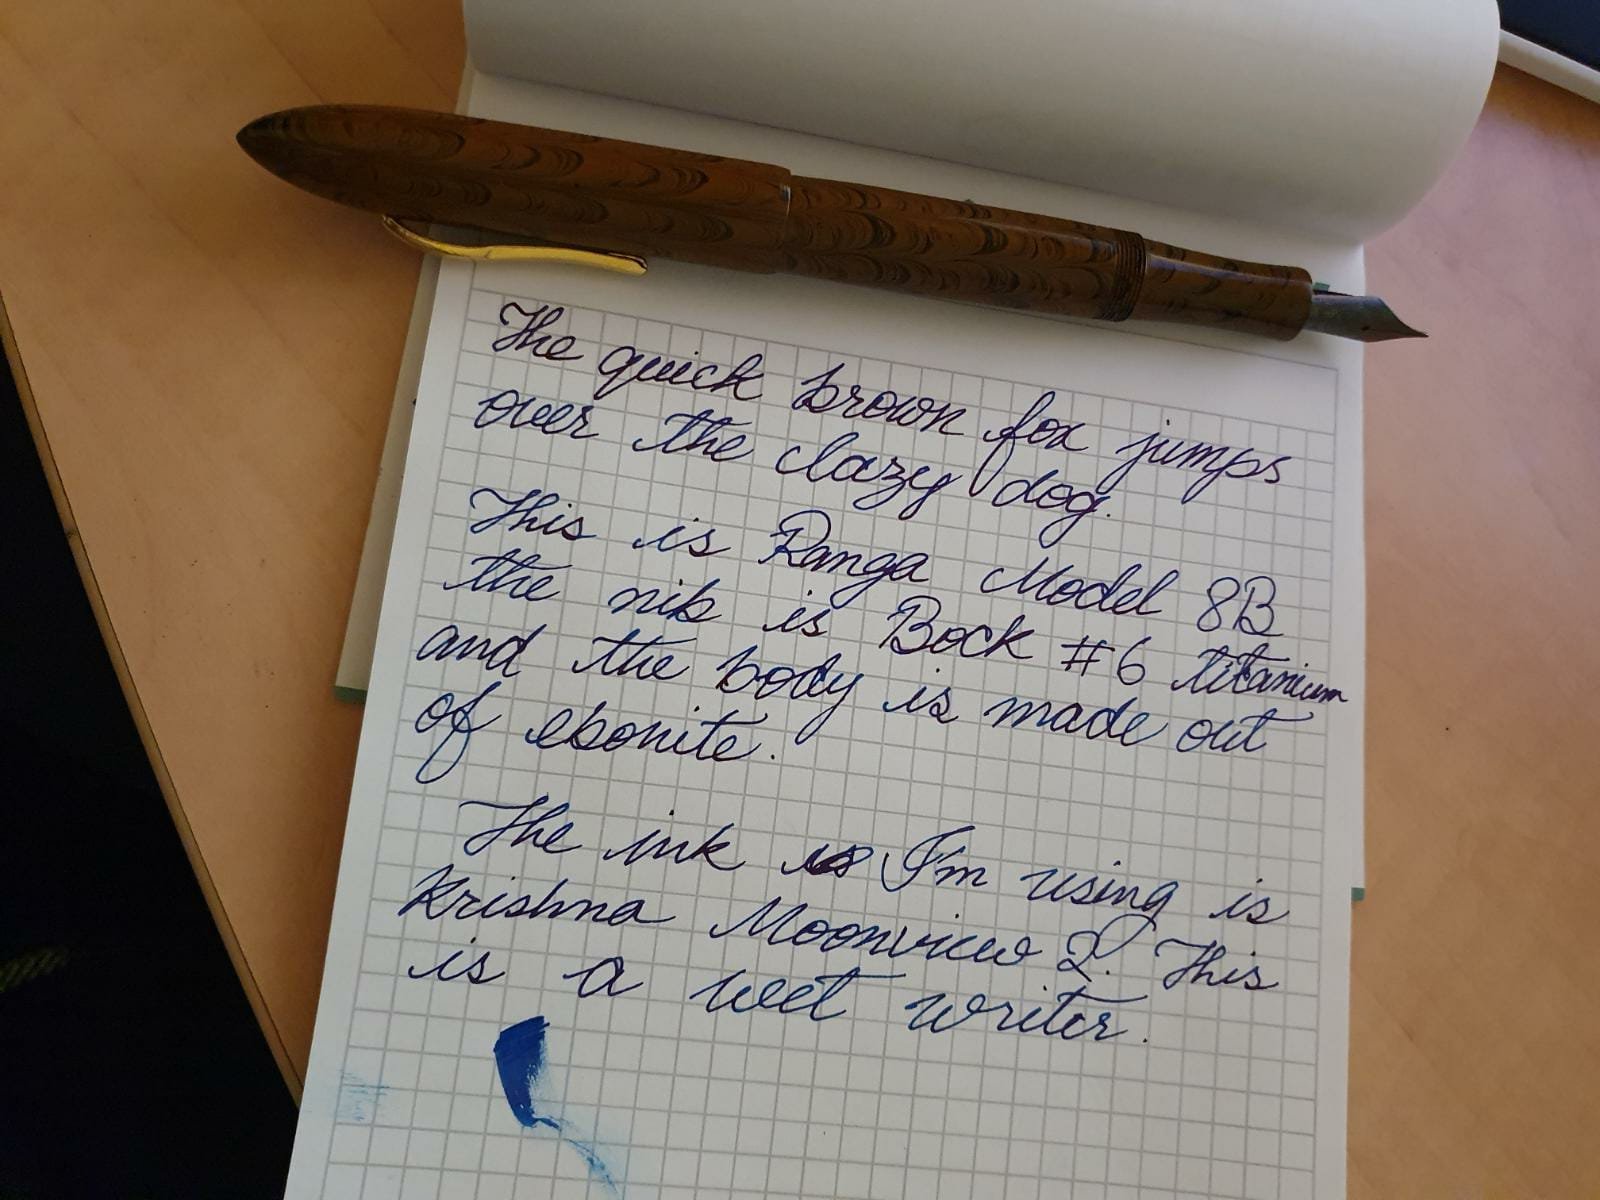 The quick brown fox jumps
over the clazy dog.
This is Ranga Model 8B
the nib is Bock #6 titanium
and the body is made out
of ebonite.
The ink is I'm using is
Krishna Moonview 2. This
is a wet writer.